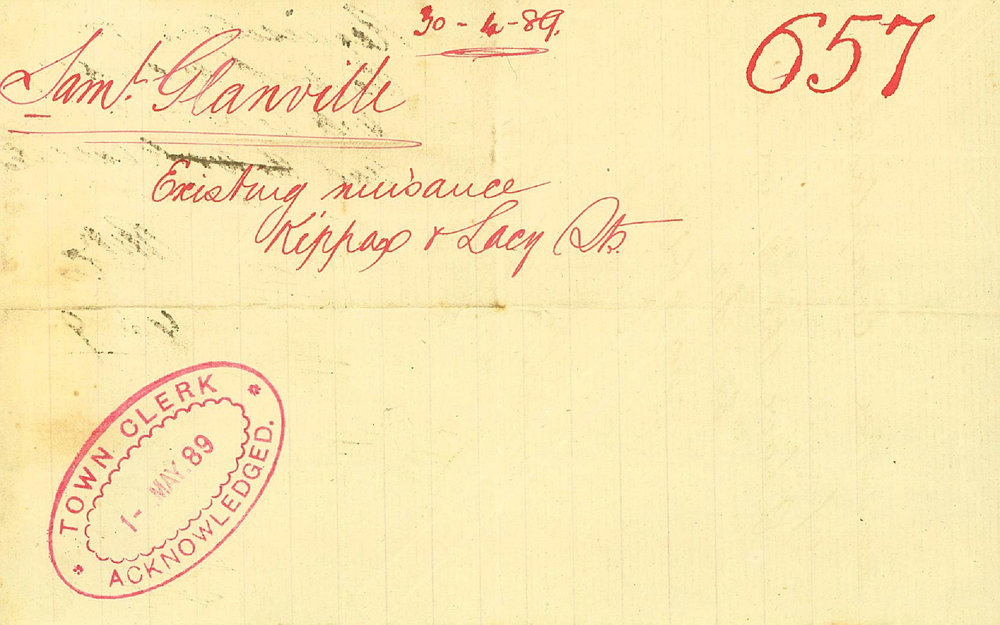 30-4-89.
657
Saml. Glanville
Existing nuisance
Kippax & Lacy Sts.
TOWN CLERK
1- MAY. 89
ACKNOWLEDGED.